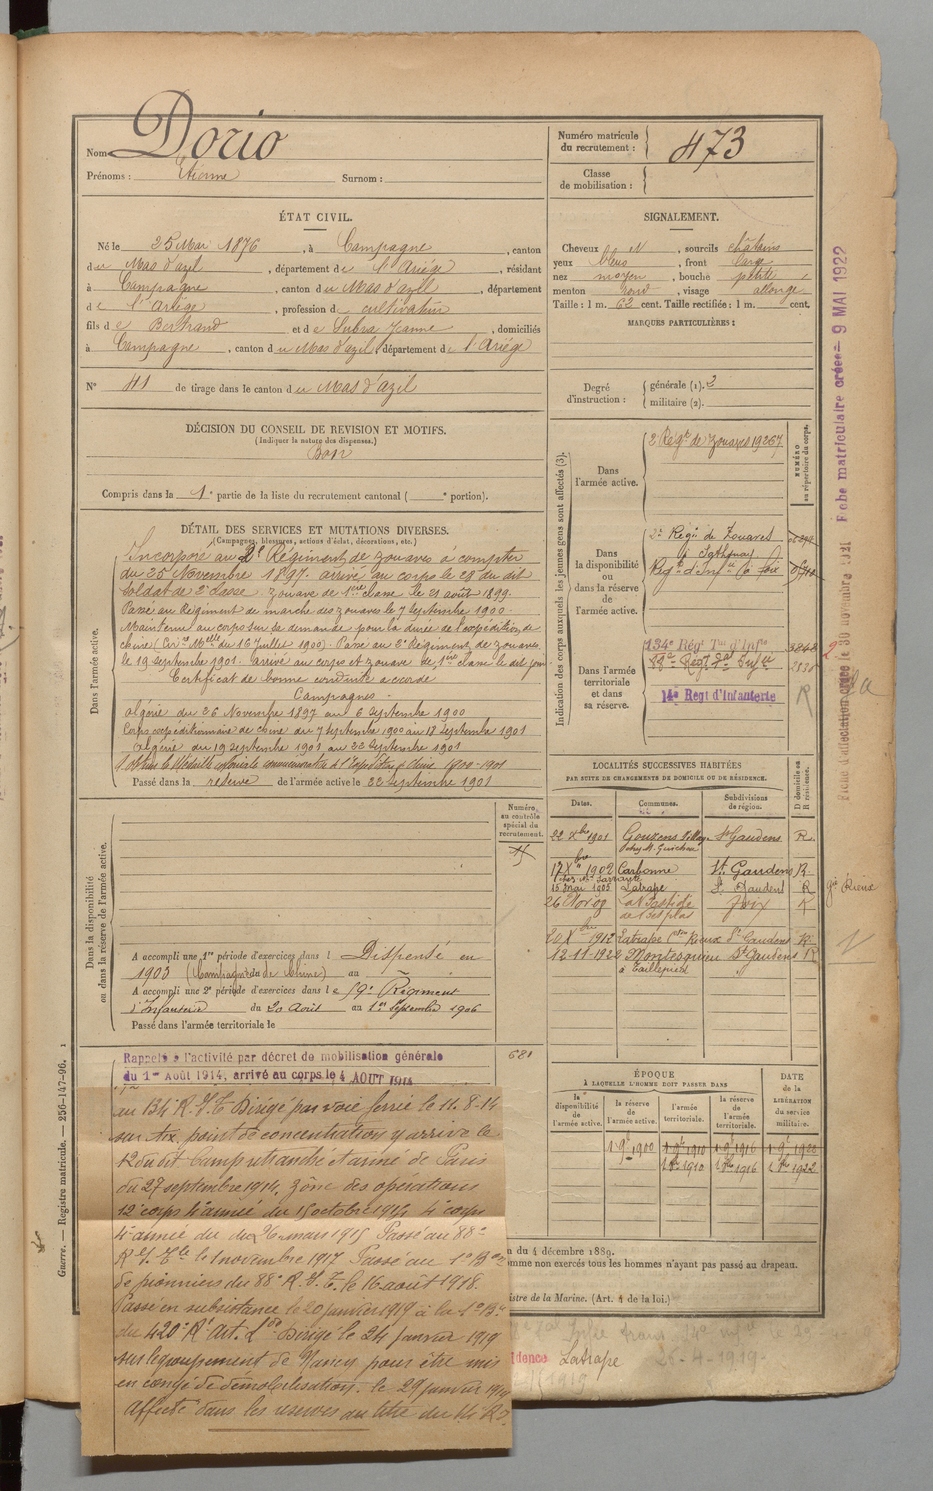 Nom Dorio
Prénoms : Etienne Surnom :
Numéro matricule du recrutement : 473
Classe de mobilisation :
ÉTAT CIVIL.
Né le 25 Mai 1876, à Campagne, canton
du Mas d'azil, département de l'Ariége, résidant
à Campagne, canton du Mas d'azil, département
de l'Ariége, profession de cultivateur
fils de Bertrand et de Subra Jeanne, domiciliés
à Campagne, canton du Mas d'azil, département de l'Ariége
N° 41 de tirage dans le canton du Mas d'azil
SIGNALEMENT.
Cheveux , sourcils châtains
yeux bleus, front large
nez moyen, bouche petite
menton rond, visage allongé
Taille : 1 m. 62 cent. Taille rectifiée : 1 m. cent.
MARQUES PARTICULIÈRES :
Degré d'instruction : générale (1). 2
militaire (2).
DÉCISION DU CONSEIL DE REVISION ET MOTIFS.
(Indiquer la nature des dispenses.)
Bon
Compris dans la 1e partie de la liste du recrutement cantonal ( e portion).
DÉTAIL DES SERVICES ET MUTATIONS DIVERSES.
(Campagnes, blessures, actions d'éclat, décorations, etc.)
Dans l'armée active.
Incorporé au 2e Régiment de zouaves à compter
du 25 Novembre 1897. arrivé au corps le 28 du dit
soldat de 2e classe. Zouave de 1ère classe le 21 août 1899.
Passé au Régiment de marche des zouaves le 7 septembre 1900.
Maintenu au corps sur sa demande pour la durée de l'expédition de
chine (Circ. Mlle du 16 juillet 1900). Passé au 2e Régiment de zouaves
le 19 septembre 1901. arrivé au corps et zouave de 1ère classe le dit jour
Certificat de bonne conduite accordé
Campagnes -
Algérie du 26 Novembre 1897 au 6 septembre 1900
Corps expéditionnaire de chine du 7 septembre 1900 au 18 septembre 1901
Algérie du 19 septembre 1901 au 22 septembre 1901
Passé dans la réserve de l'armée active le 22 septembre 1901
Indication des corps auxquels les jeunes gens sont affectés (3).
NUMÉRO au répertoire du corps.
Dans l'armée active. 2 Régt de zouaves 19267
Dans la disponibilité ou dans la réserve de l'armée active.
2e Régt de Zouaves
Régt d'Infie à Foix
Dans l'armée territoriale et dans sa réserve.
134e Régt Tal d'Infie
14e Régt d'Infanterie R
LOCALITÉS SUCCESSIVES HABITÉES
PAR SUITE DE CHANGEMENTS DE DOMICILE OU DE RÉSIDENCE.
Dates. Communes. Subdivisions de région. D domicile ou R résidence.
22 Xbre 1901 Gouzens St Gaudens R
17 Xbre 1902 Carbonne St Gaudens R
15 mai 1905 Latrape St Gaudens R
Foix R
20 Xbre 1912 Latrape Rieux St Gaudens R
12-11-1922 Montesquieu St Gaudens R
Dans la disponibilité ou dans la réserve de l'armée active.
Numéro au contrôle spécial du recrutement.
A accompli une 1re période d'exercices dans l Dispensé en
1903 (Campagne de Chine) du au
A accompli une 2e période d'exercices dans le 59e Régiment
d'Infanterie du 20 Août au 1er Septembre 1906
Passé dans l'armée territoriale le
681
Rappelé à l'activité par décret de mobilisation générale
du 1er Août 1914, arrivé au corps le 4 AOUT 1914
au 134e R.I.T. Dirigé par voie ferrée le 11.8.14
sur Aix point de concentration y arrive le
12 du dit. Camp retranché et armé de Paris
du 27 septembre 1914. Zône des opérations
12e corps 4e armée du 15 octobre 1914 4e corps
4e armée du 26 mars 1915 Passé au 88e
R.I.Tle le 1 novembre 1917 Passé au 1er Bon
de pionniers du 88e R.I.T. le 16 août 1918.
Passé en subsistance le 20 janvier 1919 à la 1e Bie
du 420e Rt Art. Lde Dirigé le 24 janvier 1919
sur le groupement de Nancy pour être mis
en congé de démobilisation. le 29 janvier 1919
Affecté dans les réserves au titre du 14e RI
ÉPOQUE
À LAQUELLE L'HOMME DOIT PASSER DANS
la disponibilité de l'armée active. la réserve de l'armée active. l'armée territoriale. la réserve de l'armée territoriale. DATE de la LIBÉRATION du service militaire.
n du 4 décembre 1889.
omme non exercés tous les hommes n'ayant pas passé au drapeau.
istre de la Marine. (Art. 4 de la loi.)
idence Latrape
26-4-1919
Guerre. — Registre matricule. — 256-147-96.
Fiche matriculaire créée - 9 MAI 1922
Fiche d'affectation créée le 30 novembre 1921
Rieux